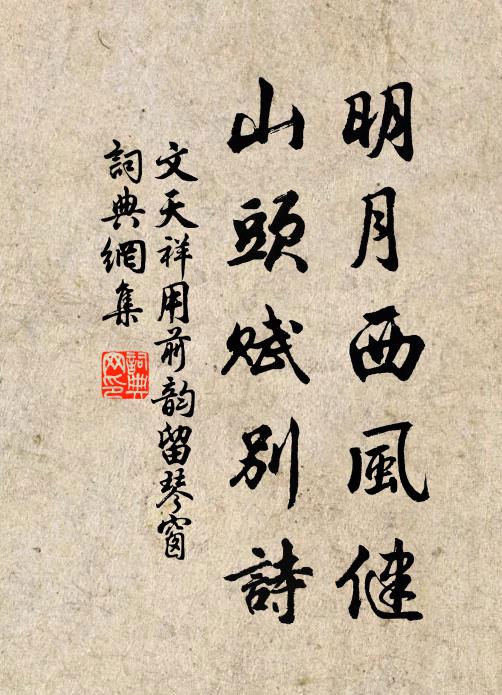 明月西風健
山頭賦別詩
文天祥用前韵留琴窗
詞典網集
詞典網印